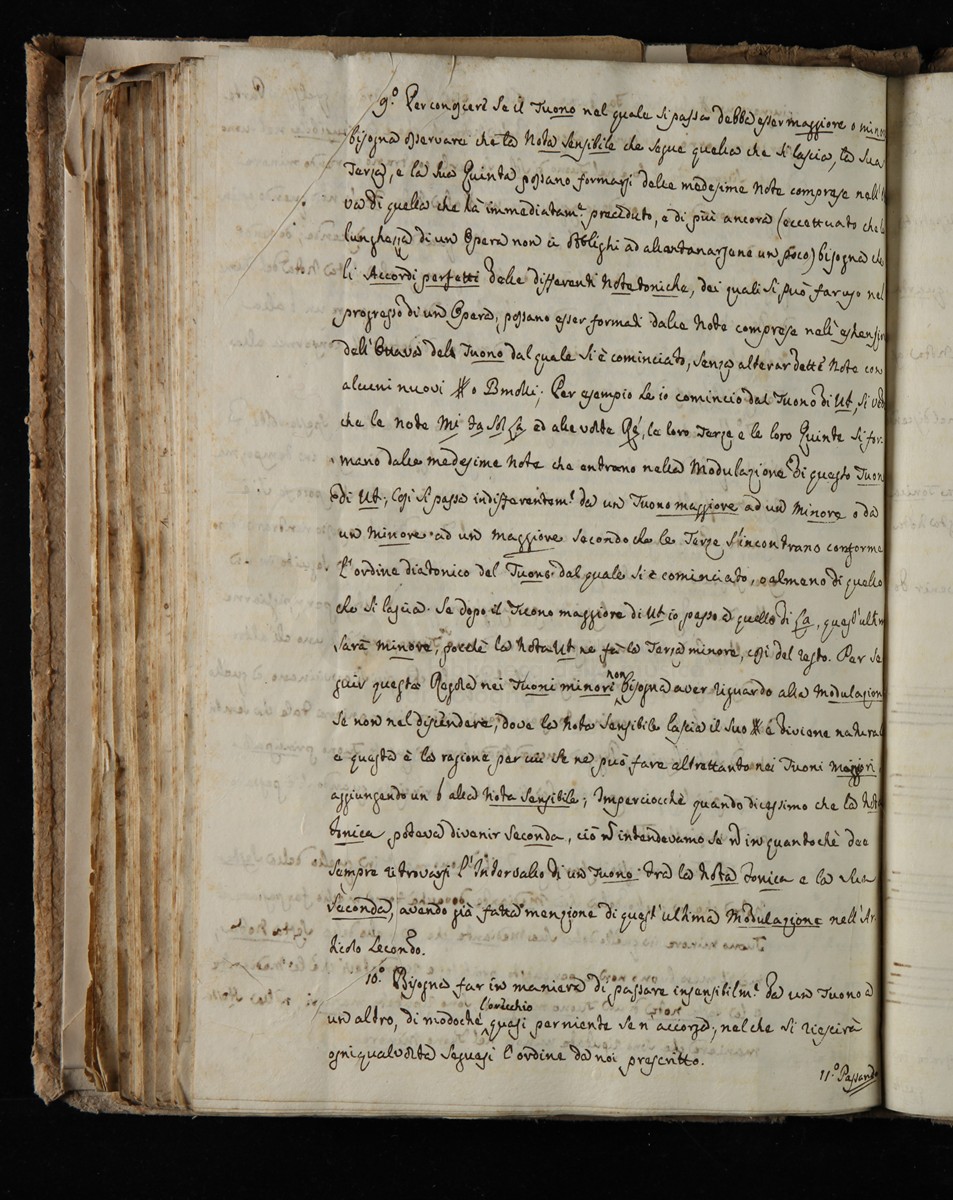 9.° Per conoscere se il Tuono nel quale si passa debba esser maggiore o minore
bisogna osservare che la Nota Sensibile che segue quella che si lascia, la sua
Terza, e la sua Quinta possano formarsi dalle medesime Note comprese nell'
va di quella che hà immediatam.e preceduto, e di più ancora (eccettuato che la
lunghezza di un Opera non ci obblighi ad allontanarsene un poco) bisogna che
li Accordi perfetti delle differenti Note toniche, dei quali si può far uso nel
progresso di un Opera, possano esser formati dalle Note comprese nell'estensione
dell'Ottava del Tuono dal quale si è cominciato, senza alterar dette Note con
alcuni nuovi # o Bmolli; Per esempio se io comincio dal Tuono di Ut, si vede
che le note Mi fa Sol La ed alle volte Ré, le loro Terze e le loro Quinte si for-
mano dalle medesime Note che entrano nella Modulazione di questo Tuono
di Ut; Così si passa indifferentem.e da un Tuono maggiore ad un Minore o da
un Minore ad un maggiore secondo che le Terze s'incontrano conforme
l'ordine diatonico del Tuono dal quale si è cominciato, o almeno di quello
che si lascia. Se dopo il Tuono maggiore di Ut io passo a quello di La, quest'ultimo
sarà minore, poichè la Nota Ut ne fà la Terza minore, così del resto. Per se
guir questa Regola nei Tuoni minori non bisogna aver riguardo alla Modulazione
se non nel discendere, dove la Nota Sensibile lascia il suo # e diviene naturale
e questa è la ragione per cui se ne può fare altrettanto nei Tuoni Maggiori
aggiungendo un b alla Nota Sensibile; Imperciocchè quando dicessimo che la Nota
tonica poteva divenir Seconda, ciò ñ intendevamo se ñ in quantochè dee
sempre ritrovarsi l'Intervallo di un Tuono trà la Nota tonica e la sua
Seconda, avendo già fatta menzione di quest'ultima Modulazione nell'Ar-
ticolo Secondo.
10.° Bisogna far in maniera di passare insensibilm.e da un Tuono a
un altro, di modochè l'orecchio quasi per niente se n'accorga; nel che si riescirà
ogniqualvolta seguasi l'ordine da noi prescritto.
11.° Passando